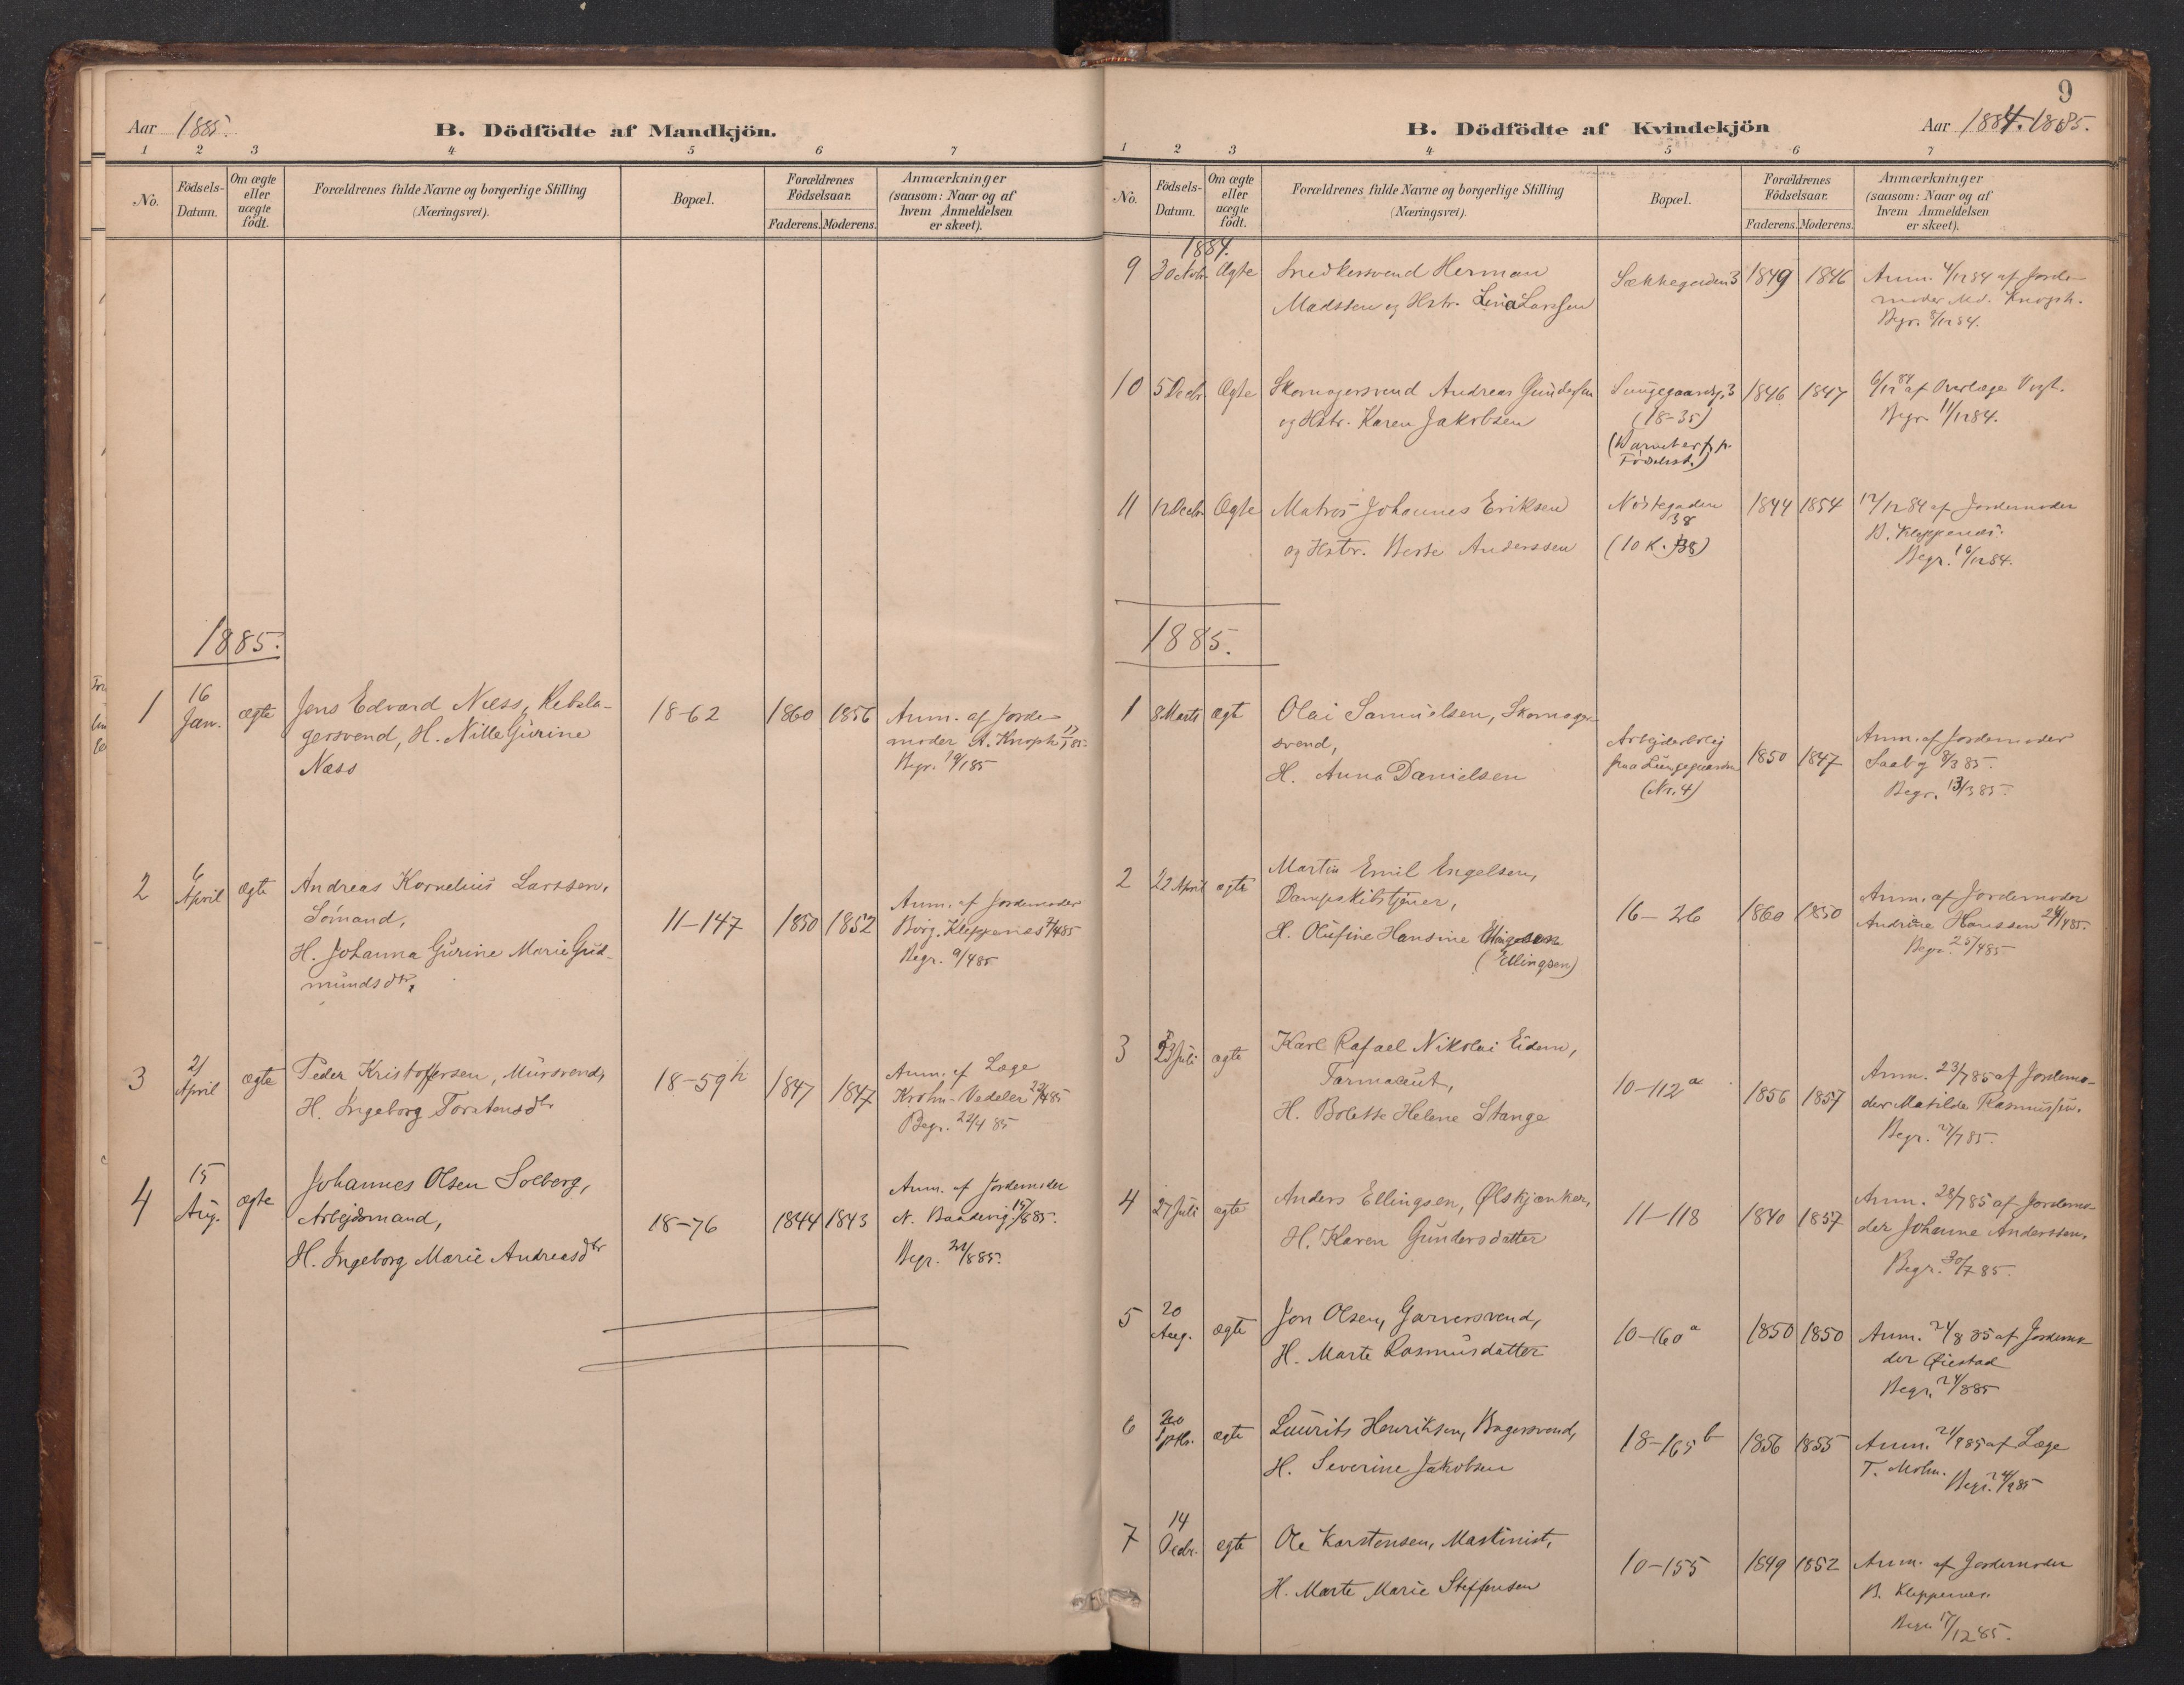 Aar 1885.
B. Dödfödte af Mandkjön.
1 2 3 4 5 6 7
No. Födsels-Datum. Om ægte eller uægte födt. Forældrenes fulde Navne og borgerlige Stilling (Næringsvei). Bopæl. Forældrenes Födselsaar. Faderens. Moderens. Anmærkninger (saasom: Naar og af hvem Anmeldelsen er skeet).
1885.
1 16 Jan. ægte Jens Edvard Næss,
gersvend, H. Nille Gurine
Næss
18-62 1860 1856
Anm. af Jorde-
moder A. Knoph 17/1 85.
Begr. 19/1 85
2 6 April ægte Andreas Kornelius Larssen,
Sömand,
H. Johanna Gurine Marie Gud-
mundsdtr,
11-147 1850 1852
Anm. af Jordemoder
Börg. Kleppenes 7/4 85
Begr. 9/4 85
3 21 April ægte Peder Kristoffersen, Mursvend,
H. Ingeborg Torstensdtr
18-59 h 1847 1847
Anm. af Læge
Krohn-Vedeler 22/4 85
Begr. 22/4 85
4 15 Aug. ægte Johannes Olsen Solberg,
Arbejdsmand,
H. Ingeborg Marie Andreasdtr
18-76 1844 1843
Anm. af Jordemoder
N. Baadsvig 15/8 85.
Begr. 20/8 85.
9
B. Dödfödte af Kvindekjön
Aar 1884. 1885.
1 2 3 4 5 6 7
No. Födsels-Datum. Om ægte eller uægte födt. Forældrenes fulde Navne og borgerlige Stilling (Næringsvei). Bopæl. Forældrenes Födselsaar. Faderens. Moderens. Anmærkninger (saasom: Naar og af hvem Anmeldelsen er skeet).
1884.
9 3 Ægte Snedkersvend Herman
Madssen og Hstr. Lina Larssen
Sækkegaden 3 1849 1846
Anm. 4/12 84 af Jorde-
moder Md. Knoph.
Begr. 8/12 84.
10 5 Decbr Ægte Skomagersvend Andreas Gundersen
og Hstr. Karen Jakobsen
Lungegaardsg. 3
(18-35)
(Barnet er f. p.
Födselsst.)
1846 1847
6/12 84 af Overlæge Vogt.
Begr. 11/12 84.
11 12 Decbr Ægte Matros Johannes Eriksen
og Hstr. Berte Anderssen
Nöstegaden
38
(10 K. 138)
1844 1854
12/12 84 af Jordemoder
B. Kleppenes.
Begr. 16/12 84.
1885.
1 8 Marts ægte Olai Samuelsen, Skomager-
svend,
H. Anna Danielsen
Arbejderbolig
paa Lungegaarden
(Nr. 4)
1850 1847
Anm. af Jordemoder
Saaby 8/3 85.
Begr. 13/3 85.
2 22 April ægte Martin Emil Engelsen,
Dampskibstjener,
H. Olufine Hansine
(Ellingsen)
16-26 1860 1850
Anm. af Jordemoder
Andrine Hanssen 24/4 85.
Begr. 25/4 85
3 23 Juli ægte Karl Rafael Nikolai Eidem,
Farmaceut,
H. Bolette Helene Stange
10-112 a 1856 1857
Anm. 23/7 85 af Jordemo-
der Matilde Rasmussen.
Begr. 27/7 85.
4 27 Juli ægte Anders Ellingsen, Ölskjænker,
H. Karen Gundersdatter
11-118 1840 1857
Anm. 28/7 85 af Jordemo-
der Johanne Anderssen.
Begr. 30/7 85.
5 20 Aug. ægte Jon Olsen, Garversvend,
H. Marte Rasmusdatter
10-160 a 1850 1850
Anm. 24/8 85 af Jordemo-
der Öiestad
Begr. 24/8 85
6 20 Sptbr. ægte Laurits Henriksen, Bagersvend,
H. Severine Jakobsen
18-165 b 1856 1855
Anm. 21/9 85 af Læge
T. Mohn. Begr. 24/9 85
7 14 Decbr. ægte Ole Karstensen, Maskinist,
H. Marte Marie Steffensen
10-155 1849 1852
Anm. af Jordemoder
B. Kleppenes.
Begr. 17/12 85.